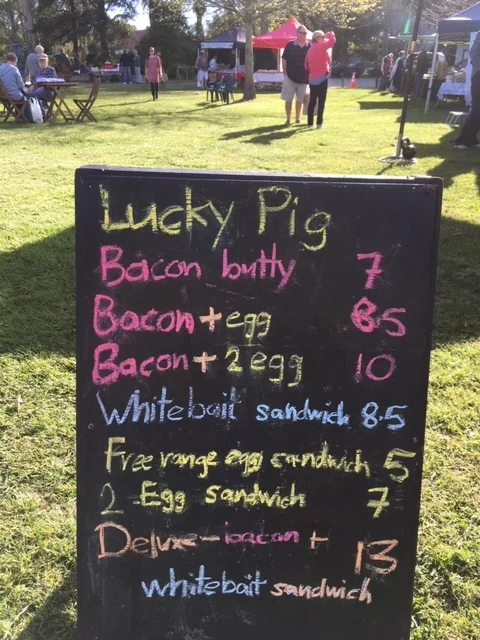 Lucky Pig
Bacon butty 7
Bacon + egg 8.5
Bacon + 2 egg 10
Whitebait sandwich 8.5
Free range egg sandwich 5
2 Egg sandwich 7
Deluxe - bacon + 13
whitebait sandwich